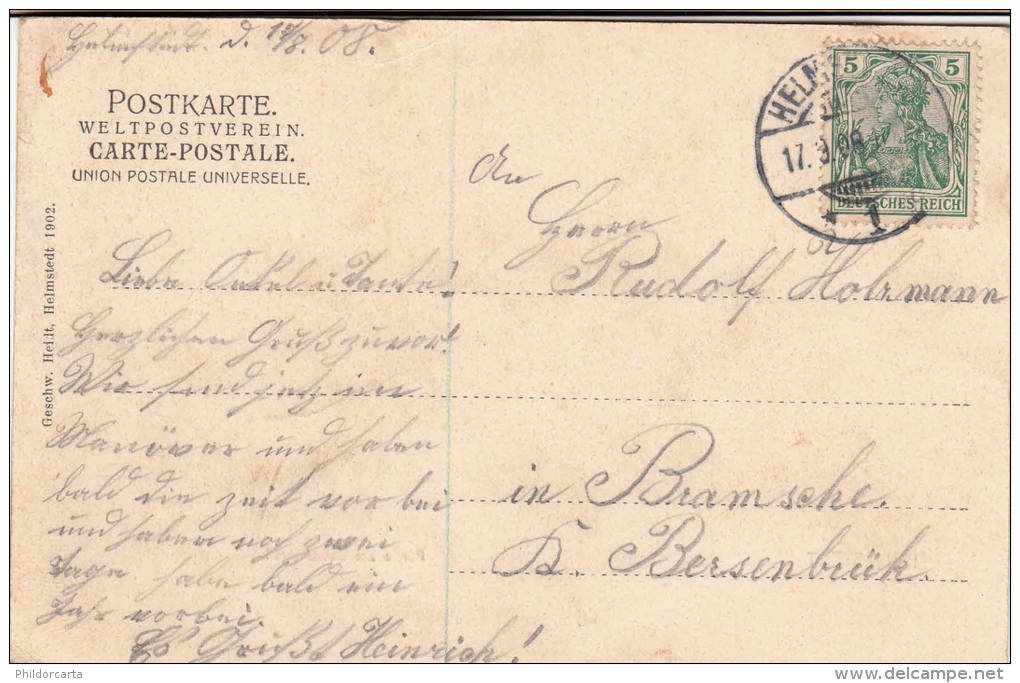 Helmstedt. d. 17/8. 08.
POSTKARTE.
WELTPOSTVEREIN.
CARTE-POSTALE.
UNION POSTALE UNIVERSELLE.
Geschw. Heißt, Helmstedt 1902.
5 5
DEUTSCHES REICH
HELM
17. 8. 08
* 1
Liebe Onkel u Tante!
Herzlichen Gruß zuvor!
Wir sind jetz im
Manöver und haben
bald die zeit vor bei
und haben noch zwei
Tage habe bald ein
Jahr vorbei.
Es Grüßt Heinrich!
An
Herrn
Rudolf Holzmann
in Bramsche.
K. Bersenbrük.
Phildorcarta
delcampe.net